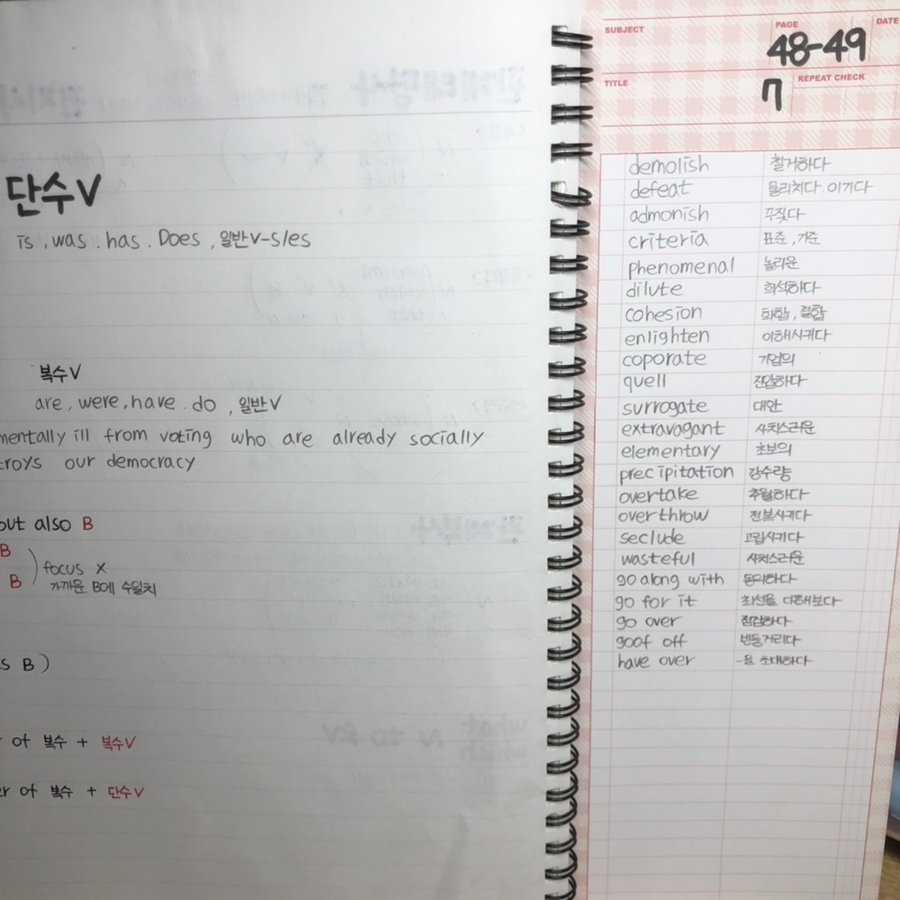 단수V
is, was. has. Does, 일반V-s/es
복수V
are, were, have. do, 일반V
mentally ill from voting who are already socially
troys our democracy
but also B
B
B
focus X
가까운 B에 수일치
s B)
of 복수 + 복수V
er of 복수 + 단수V
SUBJECT PAGE DATE
48-49
TITLE REPEAT CHECK
7
demolish 철거하다
defeat 물리치다. 이기다
admonish 꾸짖다
criteria 표준, 기준
phenomenal 놀라운
dilute 희석하다
cohesion 화합, 결합
enlighten 이해시키다
coporate 기업의
quell 진압하다
surrogate 대안
extravagant 사치스러운
elementary 초보의
precipitation 강수량
overtake 추월하다
overthrow 전복시키다
seclude 고립시키다
wasteful 사치스러운
go along with 동의하다
go for it 최선을 다해보다
go over 점검하다
goof off 빈둥거리다
have over ~을 초대하다